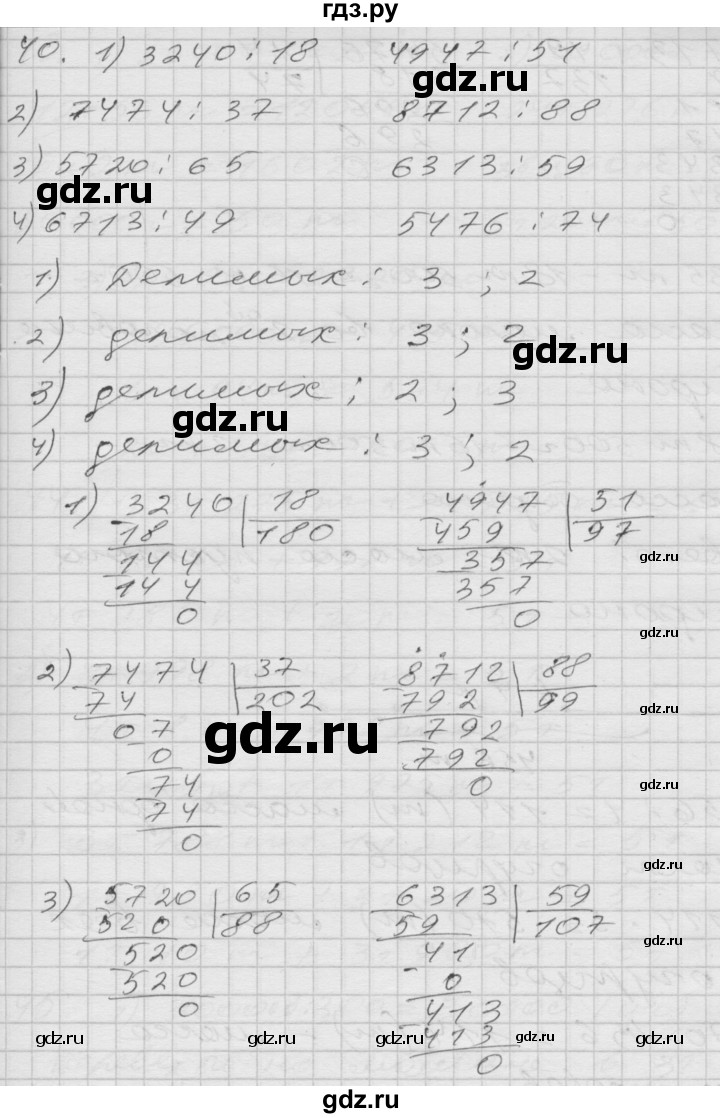 гдз.ру
40. 1) 3240 : 18 4947 : 51
gdz.ru
2) 7474 : 37 8712 : 88
3) 5720 : 65 6313 : 59
gdz.ru
4) 6713 : 49 5476 : 74
1) Делимых : 3 ; 2
2) делимых : 3 ; 2
gdz.ru
3) делимых : 2 ; 3
gdz.ru
4) делимых : 3 ; 2
1) 3240 18 4947 51
18 180 459 97
144 357 gdz.ru
144 357
0 0
gdz.ru
2) 7474 37 8712 88
74 202 792 99
gdz.ru gdz.ru
07 792
0 792
74 0 gdz.ru
74
0
gdz.ru
3) 5720 65 6313 59
520 88 59 107
520 41 gdz.ru
520 0
0 413
gdz.ru gdz.ru gdz.ru gdz.ru
413
0
gdz.ru